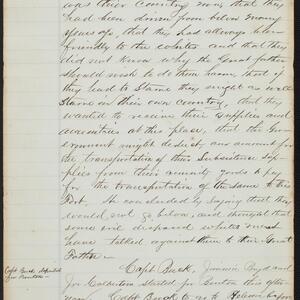 was their country now, that they
had been driven from below many
years ago, that they had allways been
friendly to the whites and that they
did not know why the Great father
should wish to do them harm, that if
they had to Starve they might as well
Starve in their own country, that they
wanted to receive their supplies and
annuities at this place, that the Gov-
ernment might deduct an amount for
the transportation of their Subsistence Sup-
plies from their annuity goods to pay
for the transportation of the same to this
Post. He concluded by saying that they
would not go below, and thought that
some evil disposed white men
have talked against them to their Great
Father –
Capt Buck,
Capt Buck, Jimmie Boyd and
Joe started for Benton this after-
noon, Capt Buck to